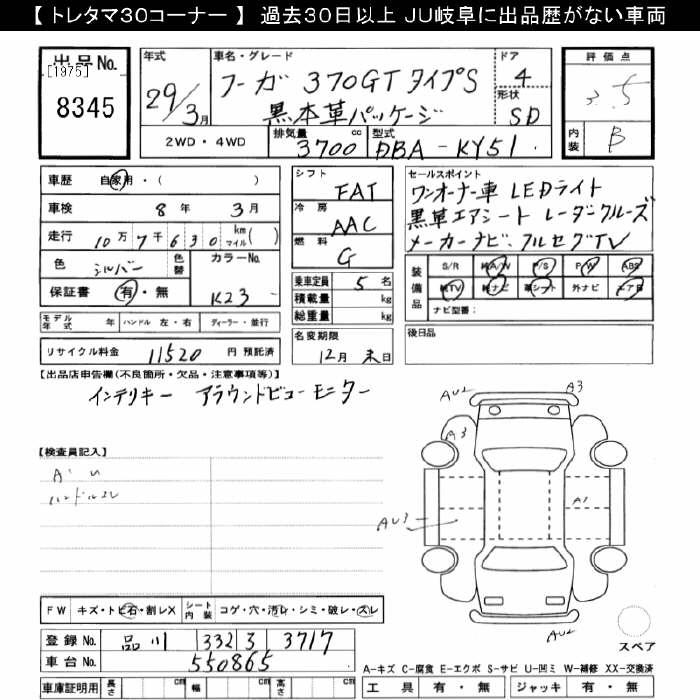 【トレタマ30コーナー】 過去30日以上 JU岐阜に出品歴がない車両
出品No. [1975] 8345
年式 29/3月
車名・グレード フーガ 370GT タイプS 黒本革パッケージ
ドア 4
形状 SD
評価点 3.5
内装 B
2WD・4WD
排気量 3700 cc
型式 DBA-KY51
車歴 自家用・( )
車検 8年 3月
走行 10万7千630 km マイル( )
色 シルバー 色替 カラーNo. K23
保証書 有・無
モデル年式 年 ハンドル 左・右 ディーラー・並行
リサイクル料金 11520 円 預託済
シフト FAT
冷房 AAC
燃料 G
乗車定員 5 名
積載量 kg
総重量 kg
名変期限 12月 末日
セールスポイント
ワンオーナー車 LEDライト
黒革エアシート レーダークルーズ
メーカーナビ・フルセグTV
装備品 S/R 純A/W P/S P/W ABS
純TV 純ナビ 革シート 外ナビ エアB
ナビ型番:
後日品
【出品店申告欄(不良箇所・欠品・注意事項等)】
インテリキー アラウンドビューモニター
【検査員記入】
A・U
ハンドルスレ
AU2 A3
A3
A1
AU3
AU2
スペア
FW キズ・トビ石・割レX シート内装 コゲ・穴・汚レ・シミ・破レ・スレ
登録No. 品川 332 3 3717
車台No. 550865
A-キズ C-腐食 E-エクボ S-サビ U-凹ミ W-補修 XX-交換済
車庫証明用 長さ cm 幅 cm 高さ cm 工具 有・無 ジャッキ 有・無